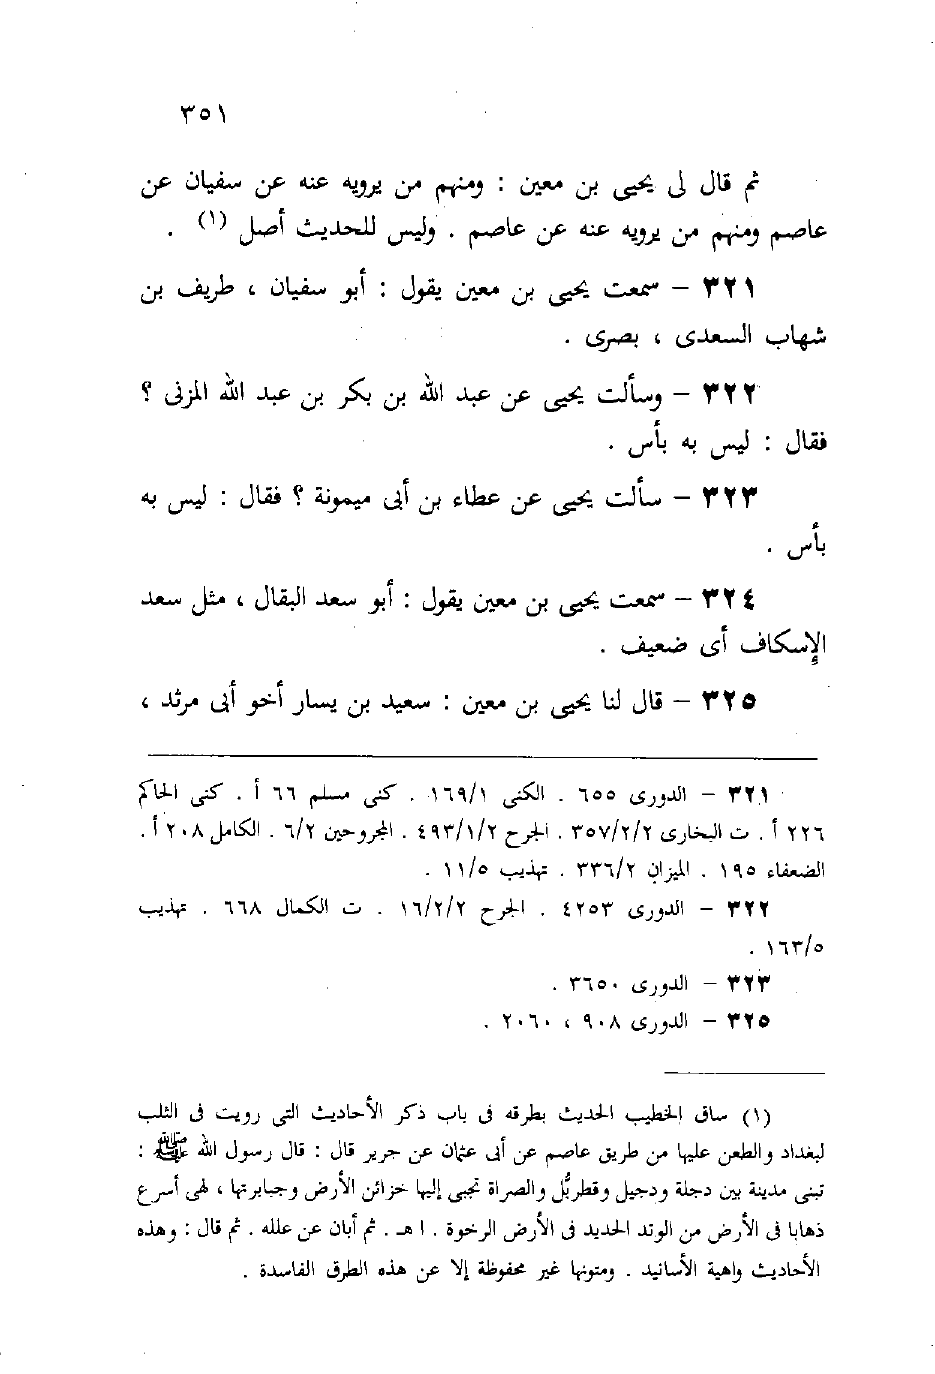 ٣٥١
ثم قال لى يحيى بن معين : ومنهم من يرويه عنه عن سفيان عن
عاصم ومنهم من يرويه عنه عن عاصم . وليس للحديث أصل (١) .
٣٢١ – سمعت يحيى بن معين يقول : أبو سفيان ، طريف بن
شهاب السعدى ، بصرى .
٣٢٢ – وسألت يحيى عن عبد الله بن بكر بن عبد الله المزنى ؟
فقال : ليس به بأس .
٣٢٣ – سألت يحيى عن عطاء بن أبى ميمونة ؟ فقال : ليس به
بأس .
٣٢٤ – سمعت يحيى بن معين يقول : أبو سعد البقال ، مثل سعد
الإسكاف أى ضعيف .
٣٢٥ – قال لنا يحيى بن معين : سعيد بن يسار أخو أبى مرثد ،
٣٢١ – الدورى ٦٥٥ . الكنى ١٦٩/١ . كنى مسلم ٦٦ أ . كنى الحاكم
٢٢٦ أ . ت البخارى ٣٥٧/٢/٢ . الجرح ٤٩٣/١/٢ . المجروحين ٦/٢ . الكامل ٢٠٨ أ .
الضعفاء ١٩٥ . الميزان ٣٣٦/٢ . تهذيب ١١/٥ .
٣٢٢ – الدورى ٤٢٥٣ . الجرح ١٦/٢/٢ . ت الكمال ٦٦٨ . تهذيب
١٦٣/٥ .
٣٢٣ – الدورى ٣٦٥٠ .
٣٢٥ – الدورى ٩٠٨ ، ٢٠٦٠ .
(١) ساق الخطيب الحديث بطرقه فى باب ذكر الأحاديث التى رويت فى الثلب
لبغداد والطعن عليها من طريق عاصم عن أبى عثمان عن جرير قال : قال رسول الله ﷺ :
تبنى مدينة بين دجلة ودجيل وقطربُّل والصراة تجبى إليها خزائن الأرض وجبابرتها ، لهى أسرع
ذهابا فى الأرض من الوتد الحديد فى الأرض الرخوة . ا هـ . ثم أبان عن علله . ثم قال : وهذه
الأحاديث واهية الأسانيد . ومتونها غير محفوظة إلا عن هذه الطرق الفاسدة .